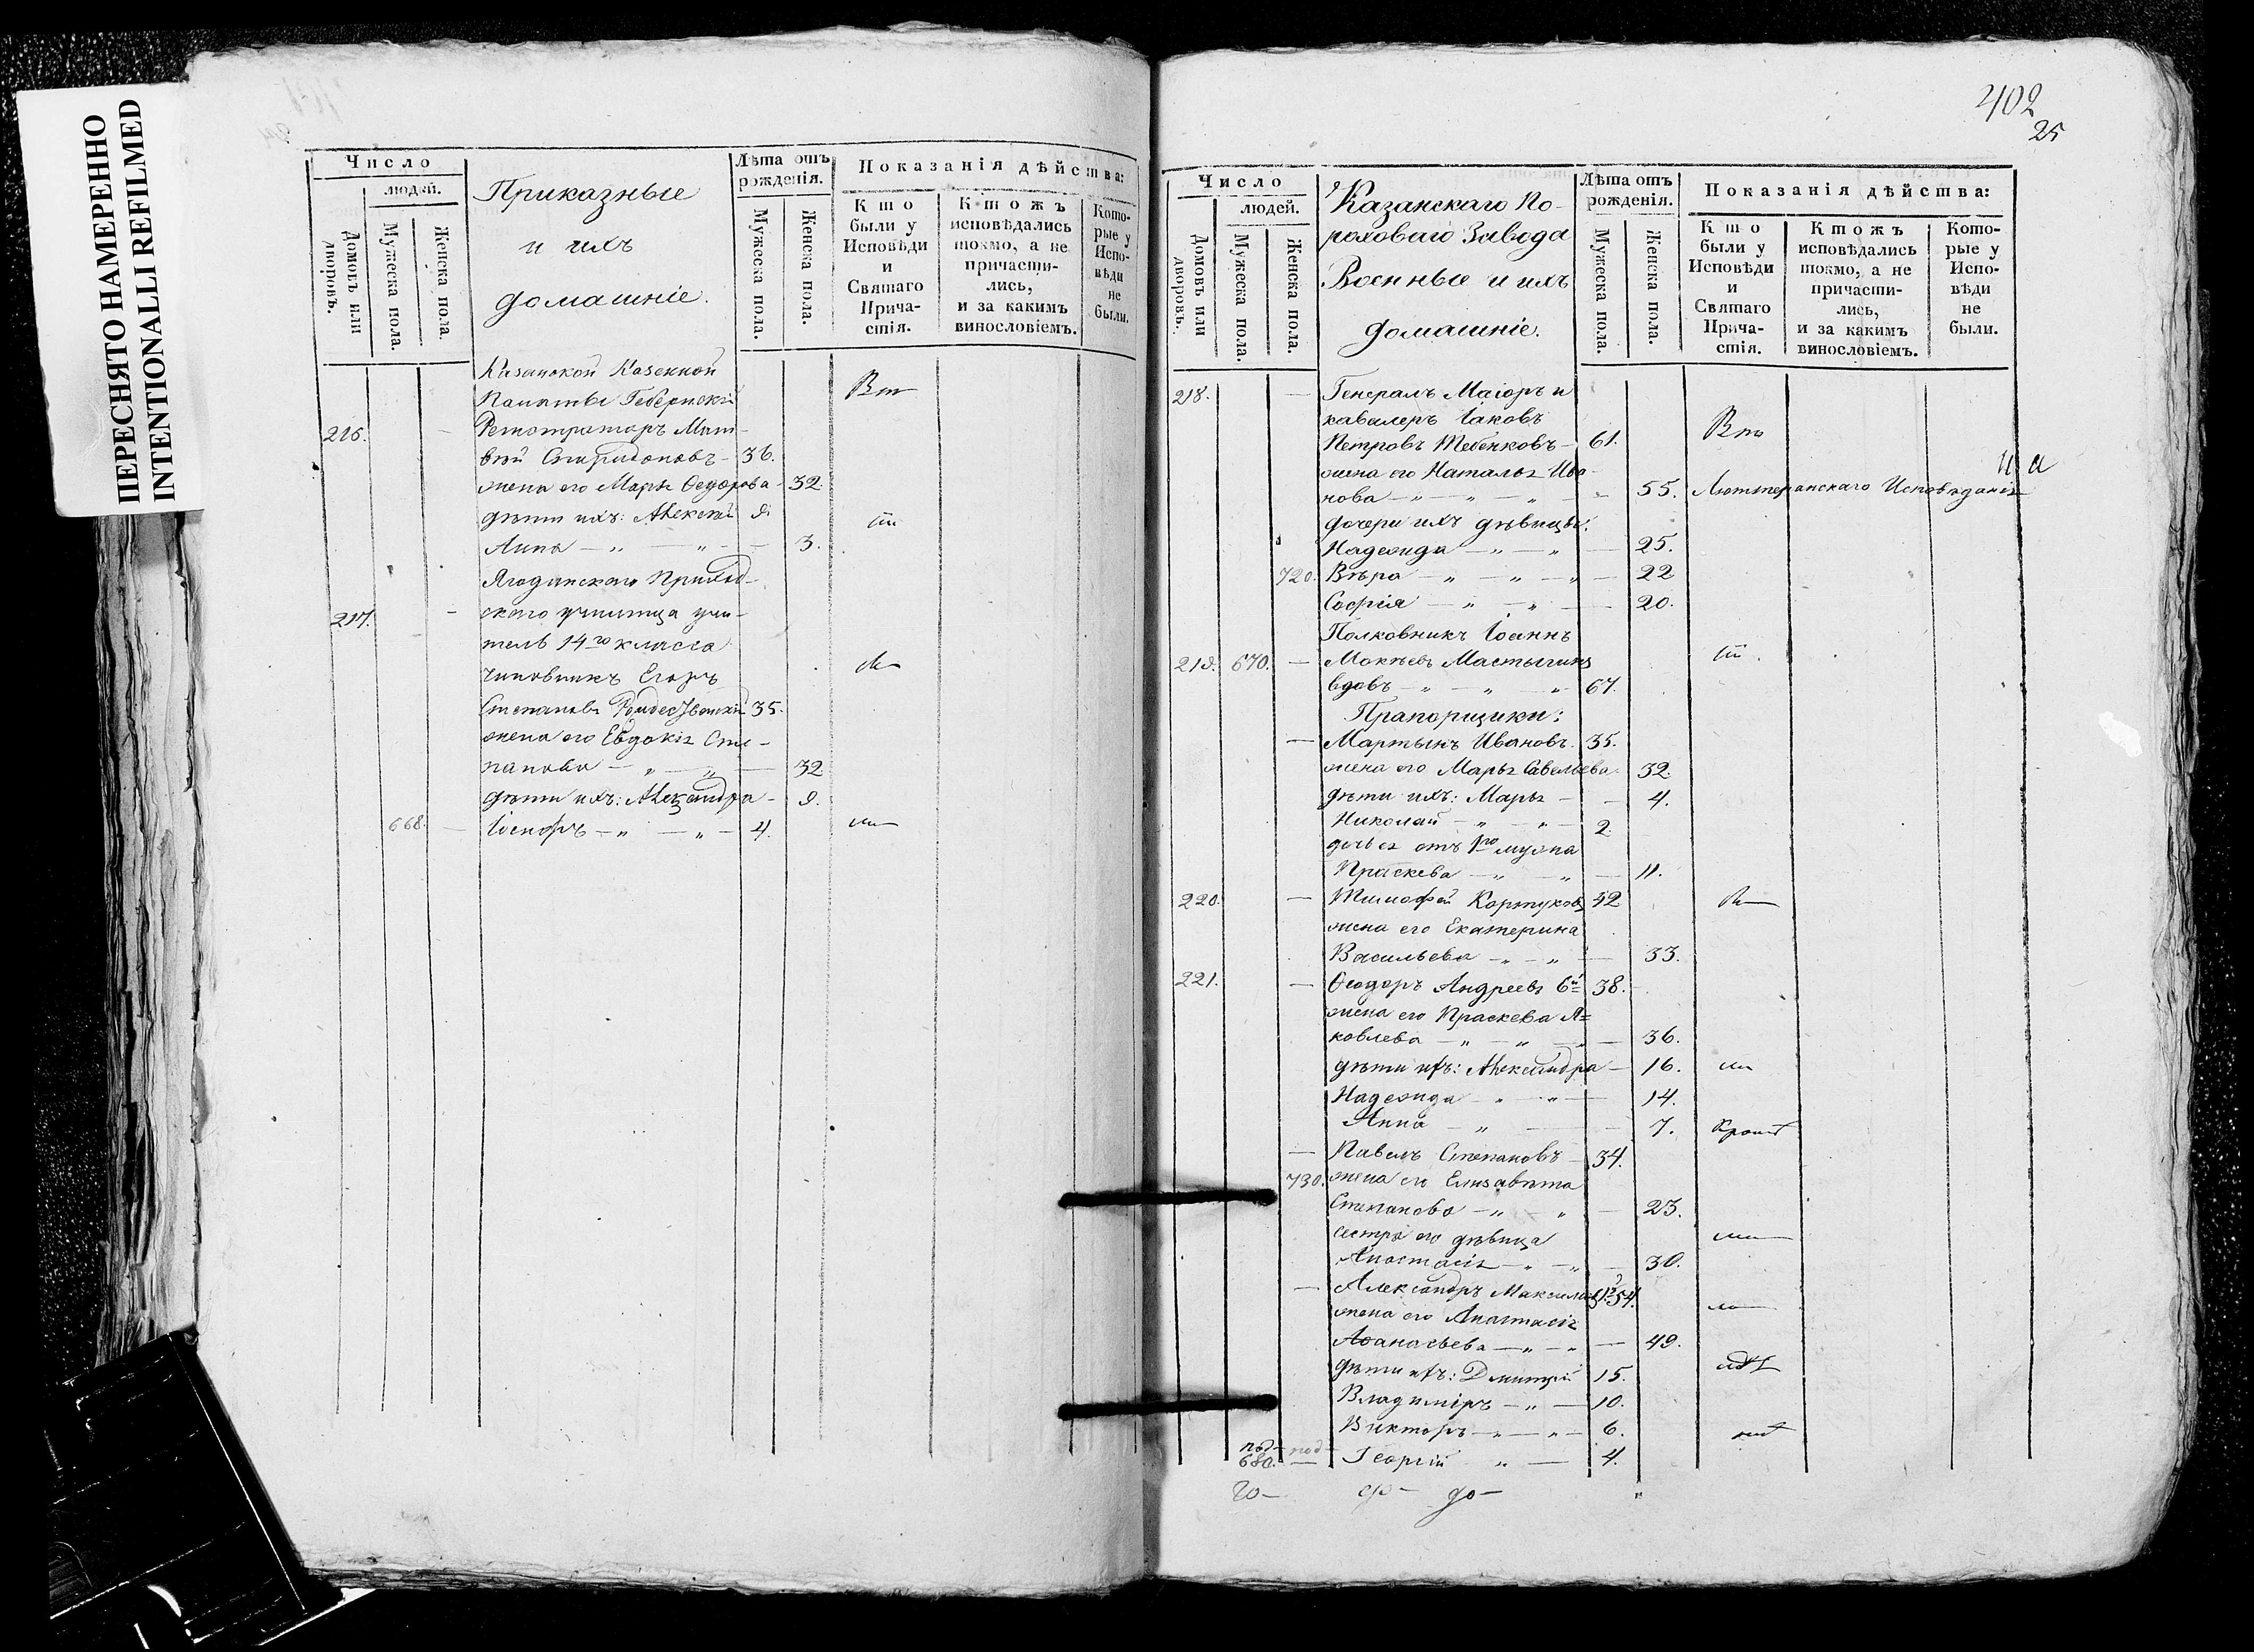 ПЕРЕСНЯТО НАМЕРЕННО
INTENTIONALLI REFILMED
Число
людей.
Домовъ или дворовъ.
Мужеска пола.
Женска пола.
Приказные
и ихъ
домашніе.
Лѣта отъ рожденія.
Мужеска пола.
Женска пола.
Показанія дѣйства:
Кто были у Исповѣди и Святаго Прича-стія.
Ктожъ исповѣдались токмо, а не причасти-лись, и за какимъ винословіемъ.
Кото-рые у Испо-вѣди не были.
Казанской Казенной
Палаты Губернскій
216. Регистраторъ Мат-
вѣй Спиридоновъ - 36.
жена его Марья Ѳедорова - 32
дѣти ихъ: Алексѣй 9.
Анна - „ - „ - 3.
Ягодинскаго Приход-
217. скаго училища учи-
тель 14го класса
чиновникъ Егоръ
Степановъ 35.
жена его Евдокія Сте-
панова - „ - „ - 32
дѣти ихъ: Александра - 9.
668. Іосифъ - „ - „ - 4.
402
25
Число
людей.
Домовъ или дворовъ.
Мужеска пола.
Женска пола.
Казанскаго По-
роховаго Завода
Военные и ихъ
домашніе.
Лѣта отъ рожденія.
Мужеска пола.
Женска пола.
Показанія дѣйства:
Кто были у Исповѣди и Святаго Прича-стія.
Ктожъ исповѣдались токмо, а не причасти-лись, и за какимъ винословіемъ.
Кото-рые у Испо-вѣди не были.
218. — Генералъ Маіоръ и
кавалеръ Іаковъ
Петровъ Тебенковъ - 61.
жена его Наталья Ива-
нова - „ - „ - „ - 55. Лютteранскаго Исповѣданія
дочери ихъ дѣвицы:
Надежда - „ - „ - 25.
720. Вѣра - „ - „ - „ - 22
Софія - „ - „ - 20.
Полковникъ Іоаннъ
219. 670. — Мокѣевъ Мастыгинъ
вдовъ - „ - „ - „ - 67.
Прапорщики:
— Мартынъ Ивановъ. 35.
жена его Марья Савельева. 32.
дѣти ихъ: Марья - 4.
Николай - „ - „ - 2.
дочь ея отъ 1го мужа
Праскева - „ - „ - 11.
220. — Тимофей 42
жена его Екатерина
Васильева - „ - „ - 33.
221. — Ѳеодоръ Андреевъ 6й 38.
жена его Праскева Я=
ковлева - „ - „ - 36.
дѣти ихъ: Александра - 16.
Надежда - „ - „ - 14.
Анна - „ - 7.
— Павелъ Степановъ - 34.
730. жена его Елизавѣта
Степанова - „ - „ - 23.
сестра его дѣвица
Анастасія - „ - „ - 30.
— Александръ 54.
жена его Анастасія
Аѳанасьева - „ - „ - 49.
дѣти ихъ: Димитрій 15.
Владиміръ - „ - 10.
Викторъ - „ - „ - 6.
680. — Георгій „ - 4.